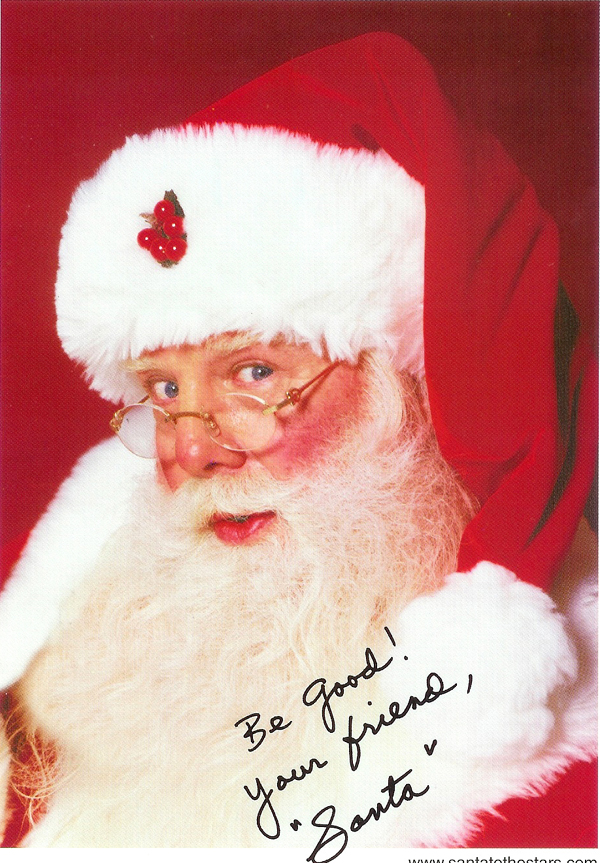 Be good!
your friend,
"Santa"
www.santatothestars.com